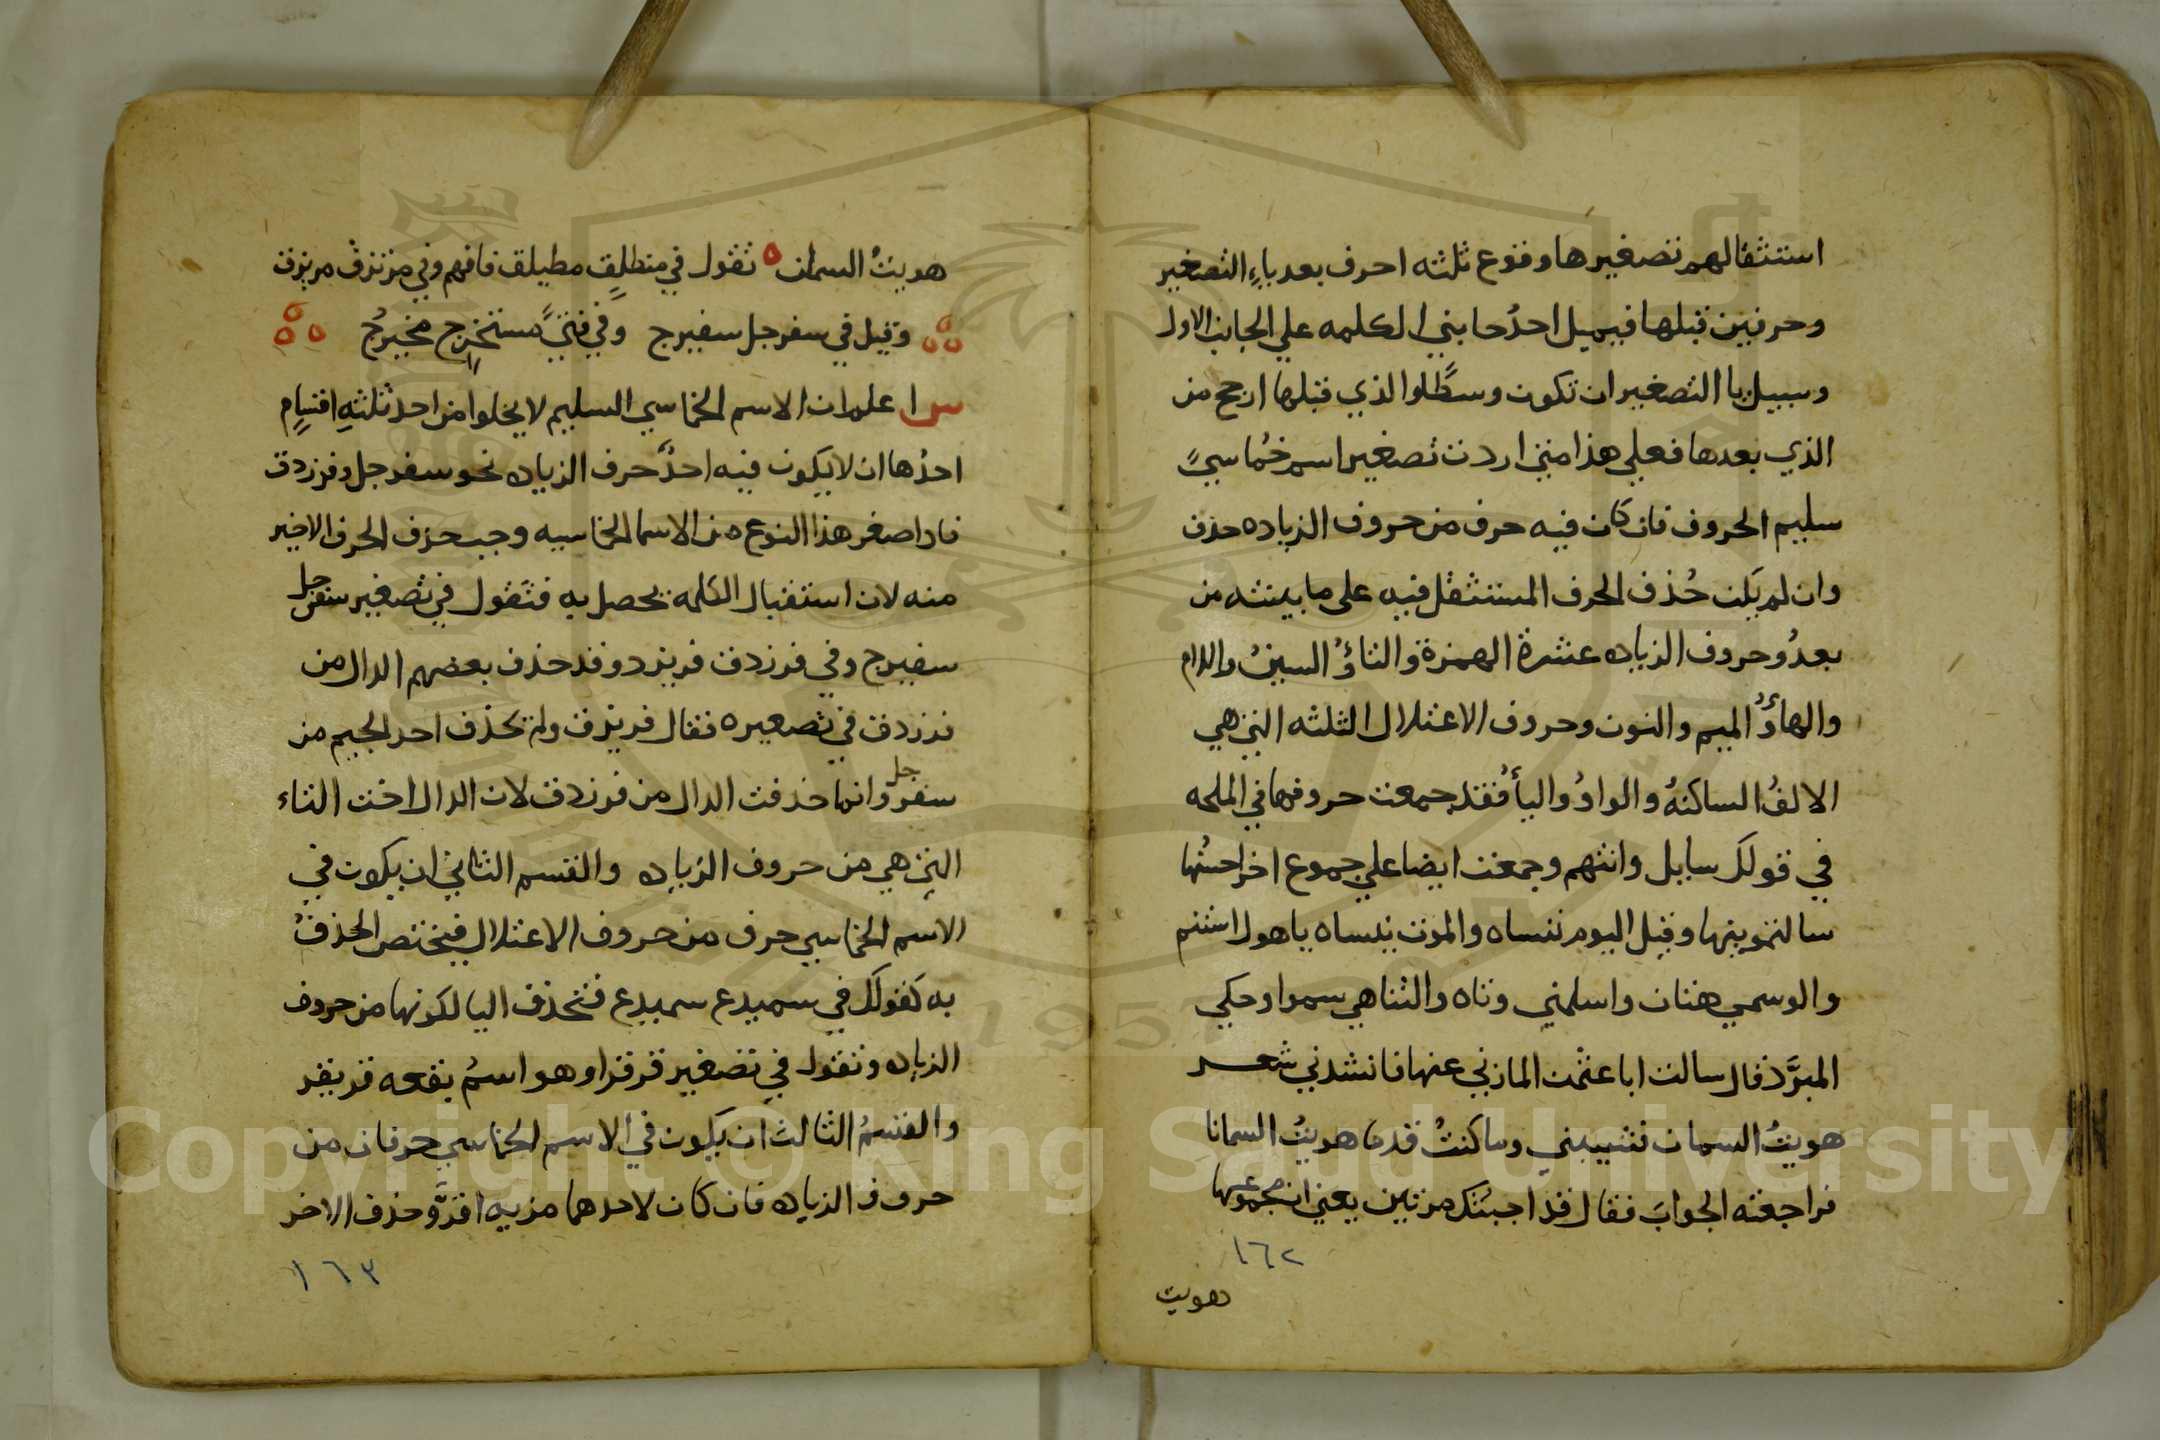 استثقالهم تصغيرها وقوع ثلثه احرف بعد ياءِ التصغير
وحرفين قبلها فيميل احدُ جانبي الكلمه علي الجانب الاول
وسبيل يا التصغير ان تكون وسطًا والذي قبلها ارجح من
الذي بعدها فعلي هذا متي اردت تصغير اسم خُماسيٍّ
سليم الحروف فان كان فيه حرف من حروف الزياده حذف
وان لم يَكن حُذف الحرف المستثقل فيه على ما بينته من
بعدُ وحروف الزياده عشرة الهمزة والتاءُ والسينُ واللام
والهاءُ والميم والنون وحروف الاعتلال الثلثه التي هي
الالفُ الساكنهُ والواوُ والياءُ فقد جمعت حروفها في الملحه
في قولك سايل وانتهم وجمعت ايضا علي جموع اخر احسنُها
سالتمونيها وقيل اليوم تنساه والموت ينساه يا هول استنم
والوسمي هتان واسلمني وتاه والتناهي سمو وحكي
المبرَّد قال سالت ابا عثمن المازني عنها فانشدني شعر
هويتُ السمان فشيبنني وما كنتُ قدما هويتُ السمانا
فراجعته الجوابَ فقال قد اجبتُك مرتين يعني ان مجموعها
١٦٢
هويت
هويتُ السمان ٥ تقول في منطلِقٍ مطيلق فافهم وفي مرتزق مريزق
وقيل في سفرجل سفيرج وفي فتيً مستخرِج مخيرجُ
س اعلم ان الاسم الخماسي السليم لا يخلوا من احد ثلثهِ اقسامٍ
احدُها ان لا يكون فيه احدُ حرف الزياده نحو سفرجل وفرزدق
فاذا صغر هذا النوع من الاسما الخماسيه وجب حذف الحرف الاخير
منه لان استثقال الكلمه يحصل به فتَقول في تصغير سفرجل
سفيرج وفي فرزدق فريزد وقد حذف بعضهم الدال من
فرزدق في تصغيره فقال فريزق ولم تحذف احد الجيم من
سفرجل وانما حذفت الدال من فرزدق لان الدال اخت التاء
التي هي من حروف الزياده والقسم الثاني ان يكون في
الاسم الخماسي حرف من حروف الاعتلال فيختص الحذفُ
به كقولك في سميدع سميدع فتحذف اليا لكونها من حروف
الزياده وتقول في تصغير قرقرا وهو اسمُ بقعه قريقر
والقسمُ الثالثَ ان يكون في الاسم الخماسي حرفان من
حروف الزياده فان كان لاحدهما مزيه اقرَّ وحذف الاخر
١٦٣